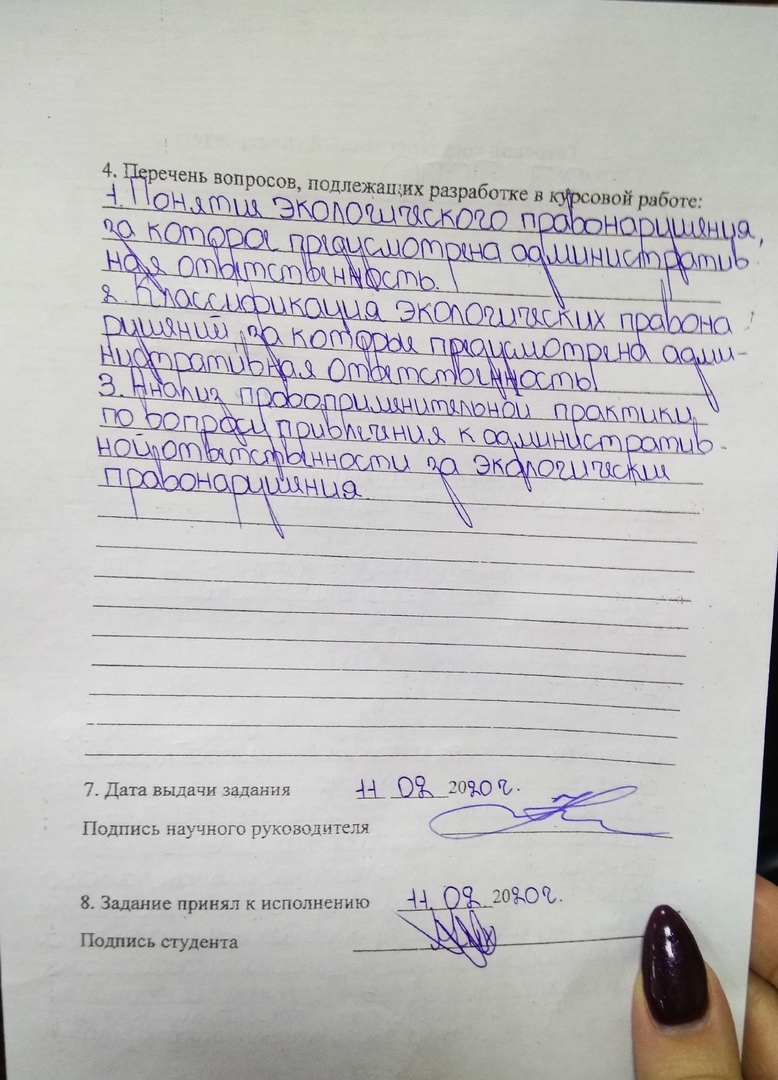 4. Перечень вопросов, подлежащих разработке в курсовой работе:
1. Понятие экологического правонарушения,
за которое предусмотрена административ
ная ответственность.
2. Классификация экологических правона
рушений, за которое предусмотрена адми-
нистративная ответственность
3. Анализ правоприменительной практики
по вопросу привлечения к административ-
ной ответственности за экологические
правонарушения.
7. Дата выдачи задания 11 02 2020 г.
Подпись научного руководителя
8. Задание принял к исполнению 11. 02 2020 г.
Подпись студента